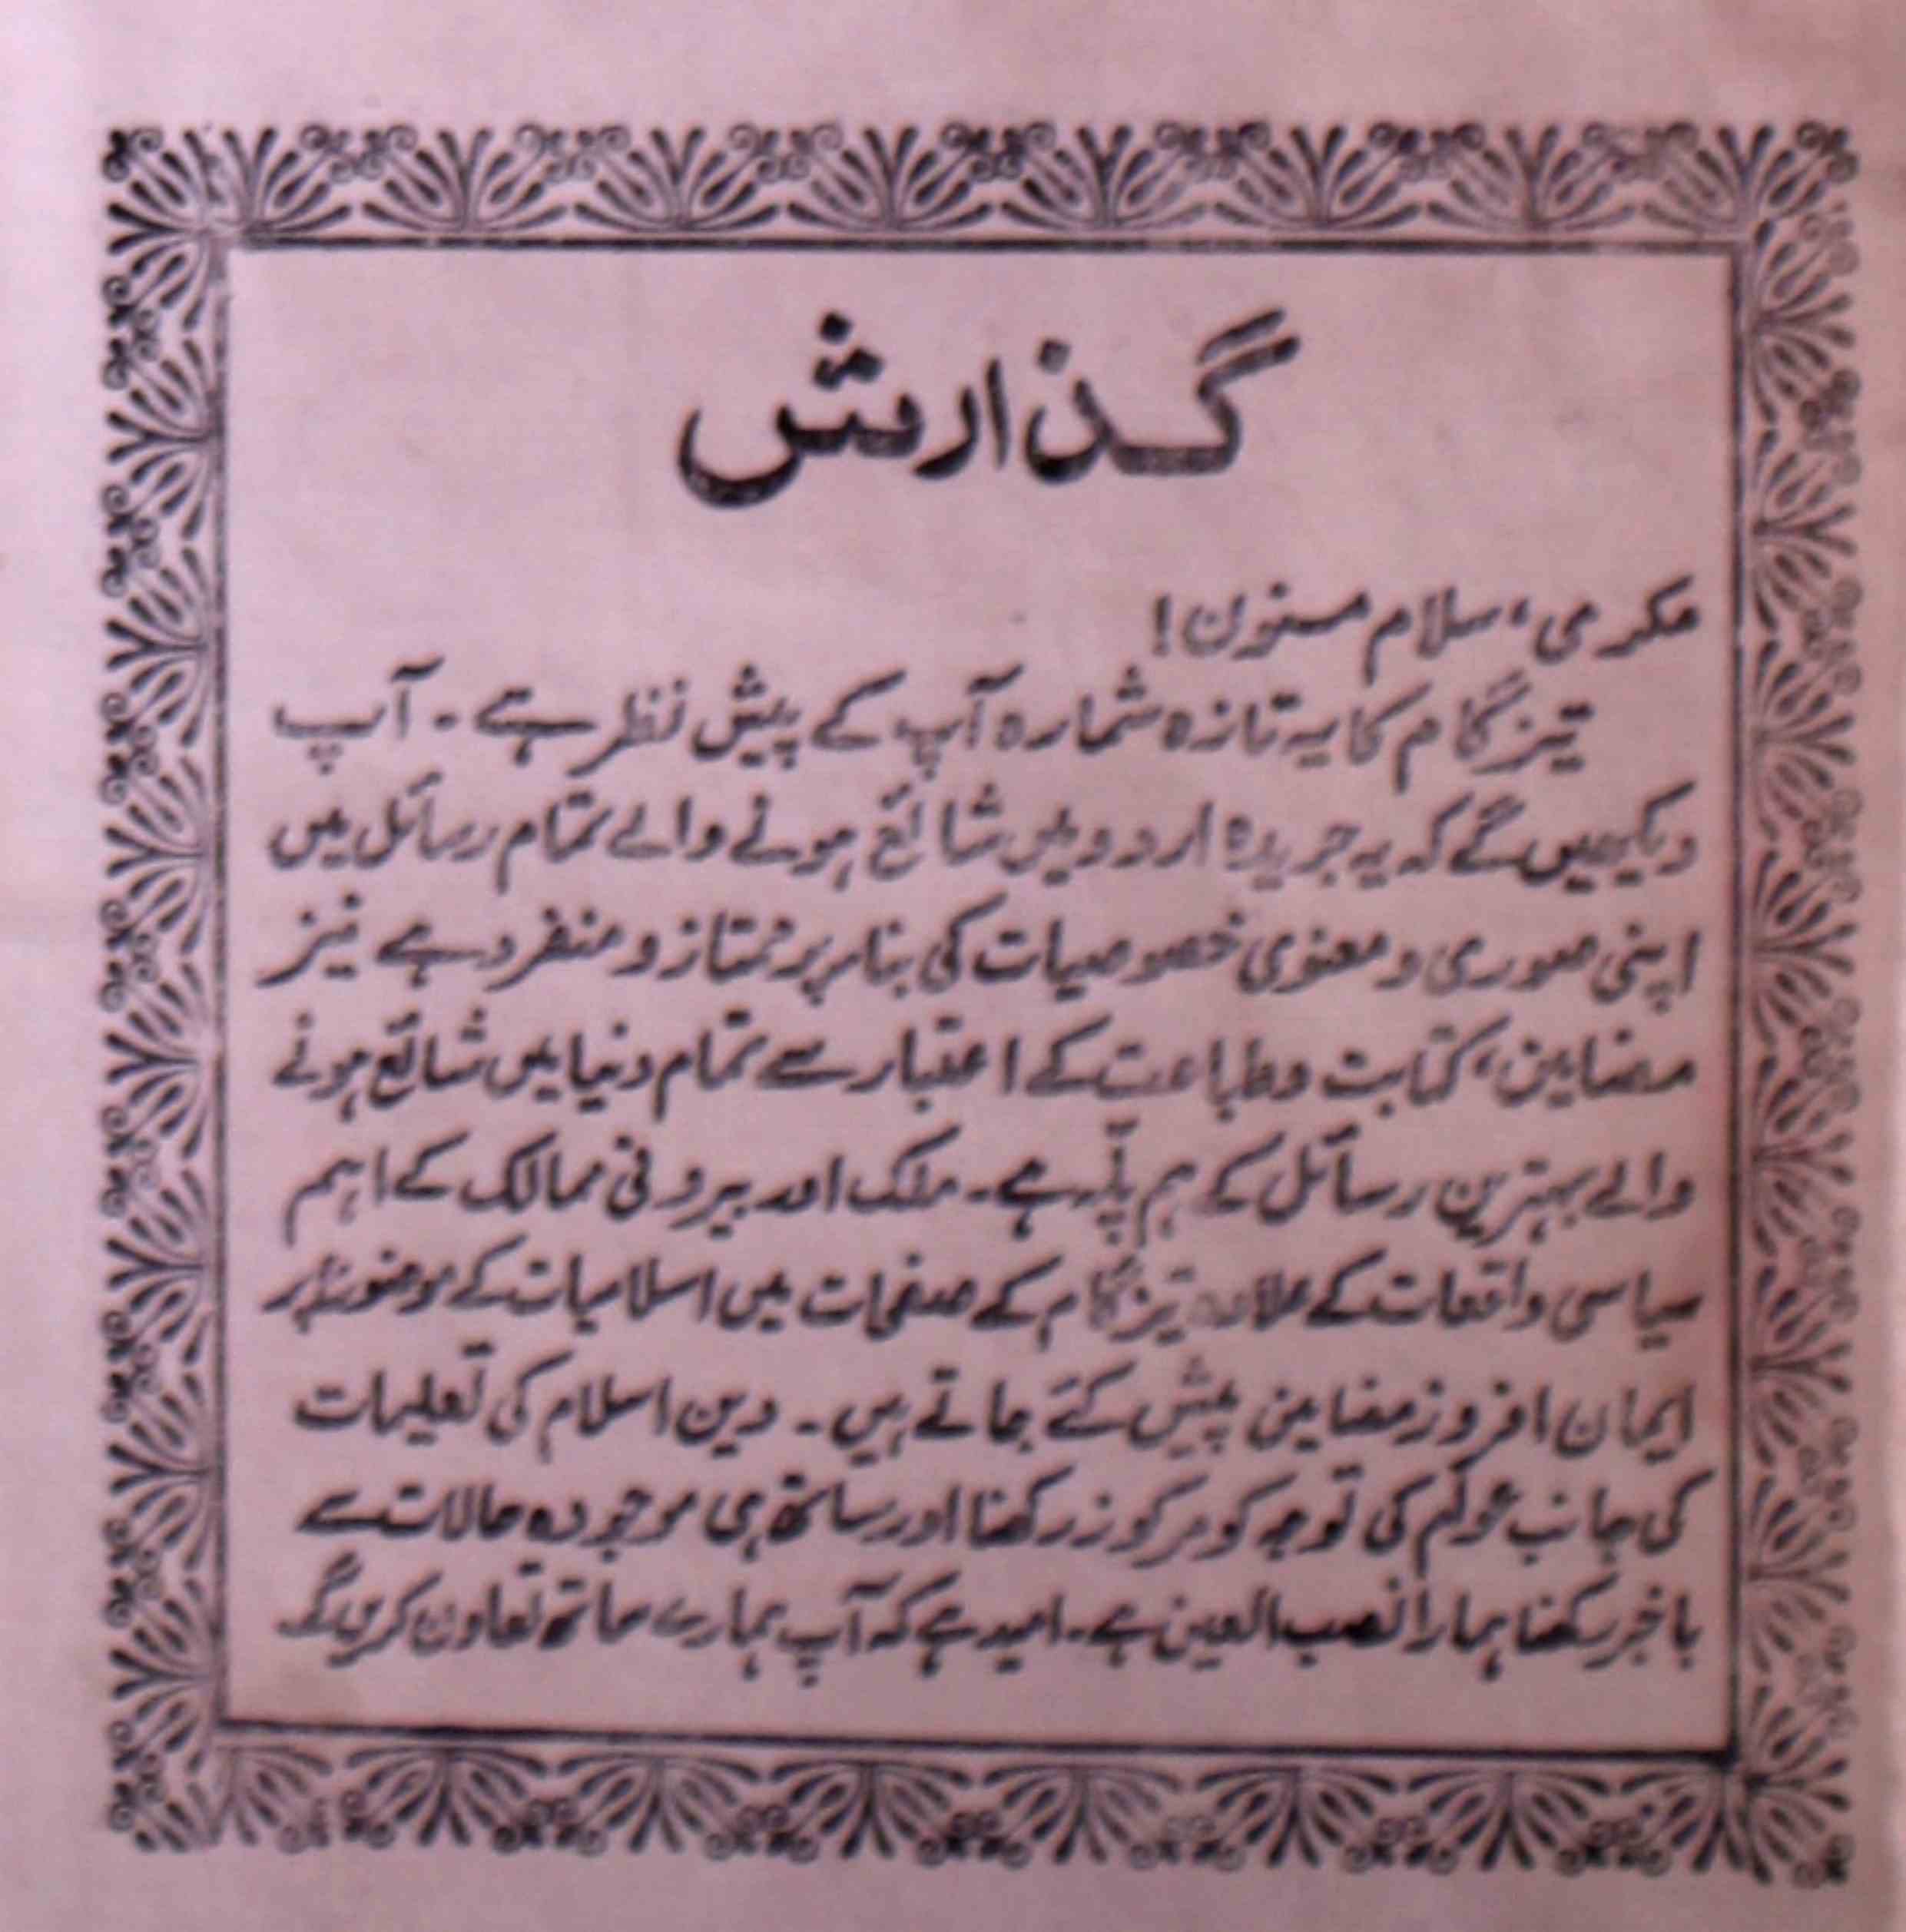 گذارش
مکرمی، سلام مسنون!
تیزگام کا یہ تازہ شمارہ آپ کے پیش نظر ہے۔ آپ
دیکھیں گے کہ یہ جریدہ اردو میں شائع ہونے والے تمام رسائل میں
اپنی صوری و معنوی خصوصیات کی بناء پر ممتاز و منفرد ہے نیز
مضامین، کتابت و طباعت کے اعتبار سے تمام دنیا میں شائع ہونے
والے بہترین رسائل کے ہم پلّہ ہے۔ ملک اور بیرونی ممالک کے اہم
سیاسی واقعات کے علاوہ تیزگام کے صفحات میں اسلامیات کے موضوع پر
ایمان افروز مضامین پیش کئے جاتے ہیں۔ دین اسلام کی تعلیمات
کی جانب عوام کی توجہ کو مرکوز رکھنا اور ساتھ ہی موجودہ حالات سے
باخبر رکھنا ہمارا نصب العین ہے۔ امید ہے کہ آپ ہمارے ساتھ تعاون کریں گے۔